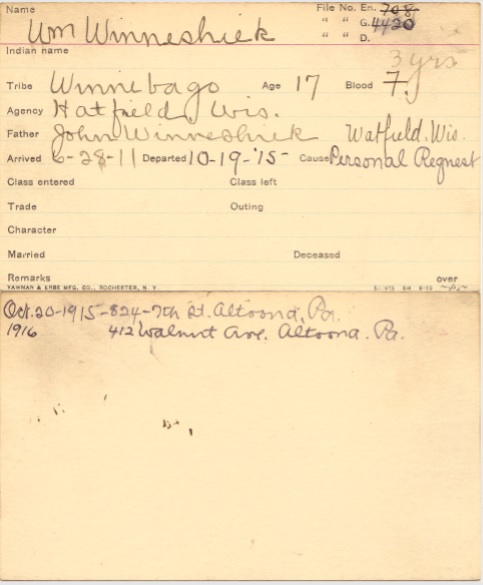 Name File No. En. 708
Wm Winneshiek " " G. 4420
" " D.
Indian name
3 yrs
Tribe Winnebago Age 17 Blood 7.
Agency Hatfield, Wis.
Father John Winneshiek Watfield. Wis.
Arrived 6-28-11 Departed 10-19-'15- Cause Personal Request
Class entered Class left
Trade Outing
Character
Married Deceased
Remarks over
YAWMAN & ERBE MFG. CO., ROCHESTER, N. Y.
Oct. 20-1915-824-7th St. Altoona, Pa.
1916 412 Walnut Ave. Altoona. Pa.